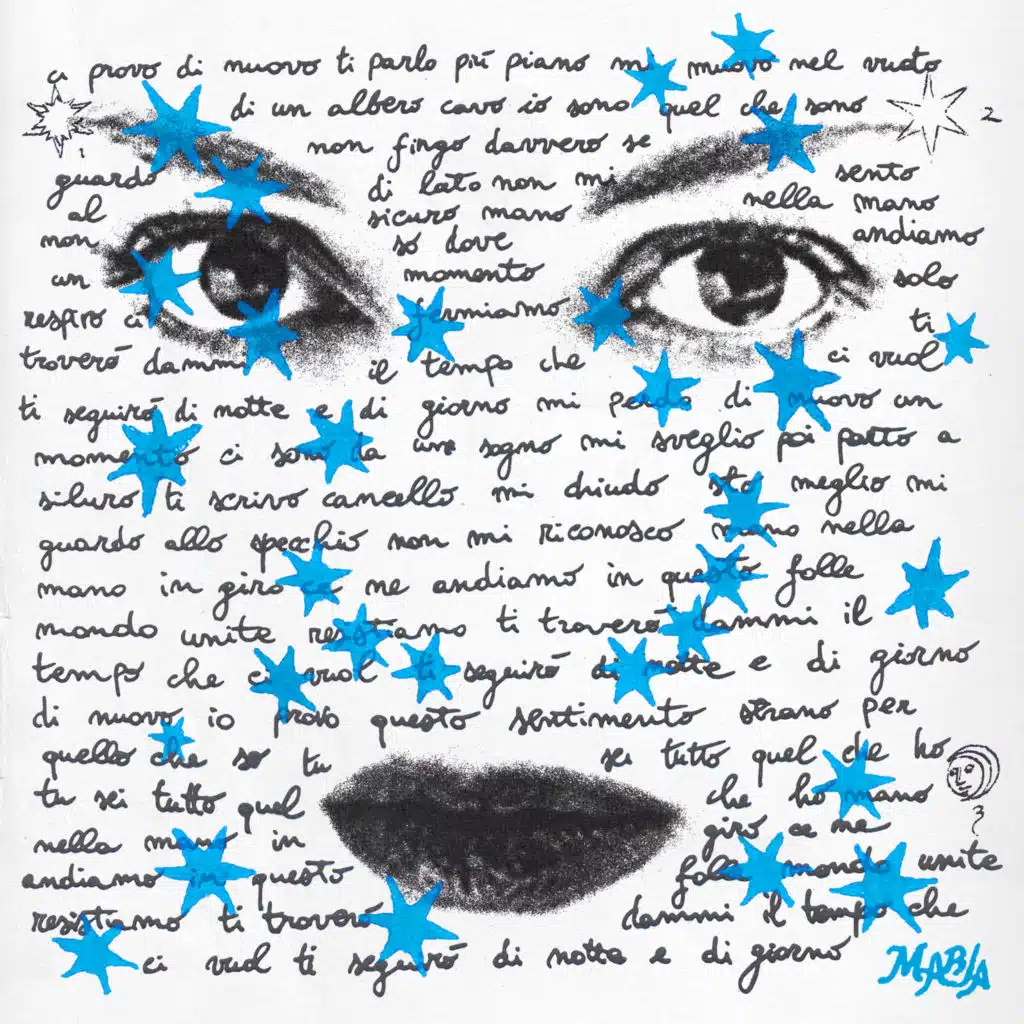 ci provo di nuovo ti parlo più piano mi muovo nel vuoto
di un albero cavo io sono quel che sono
2
non fingo davvero se
1
guardo di lato non mi sento
al sicuro mano nella mano
non so dove andiamo
un momento solo
respiro ci fermiamo ti
troverò dammi il tempo che ci vuol
ti seguirò di notte e di giorno mi perdo di nuovo un
momento ci sono da un sogno mi sveglio poi parto a
siluro ti scrivo cancello mi chiudo sto meglio mi
guardo allo specchio non mi riconosco mano nella
mano in giro ce ne andiamo in questo folle
mondo unite resistiamo ti troverò dammi il
tempo che ci vuol ti seguirò di notte e di giorno
di nuovo io provo questo sentimento strano per
quello che so tu sei tutto quel che ho
tu sei tutto quel che ho mano
3
nella mano in giro ce ne
andiamo in questo folle mondo unite
resistiamo ti troverò dammi il tempo che
ci vuol ti seguirò di notte e di giorno
MABIA